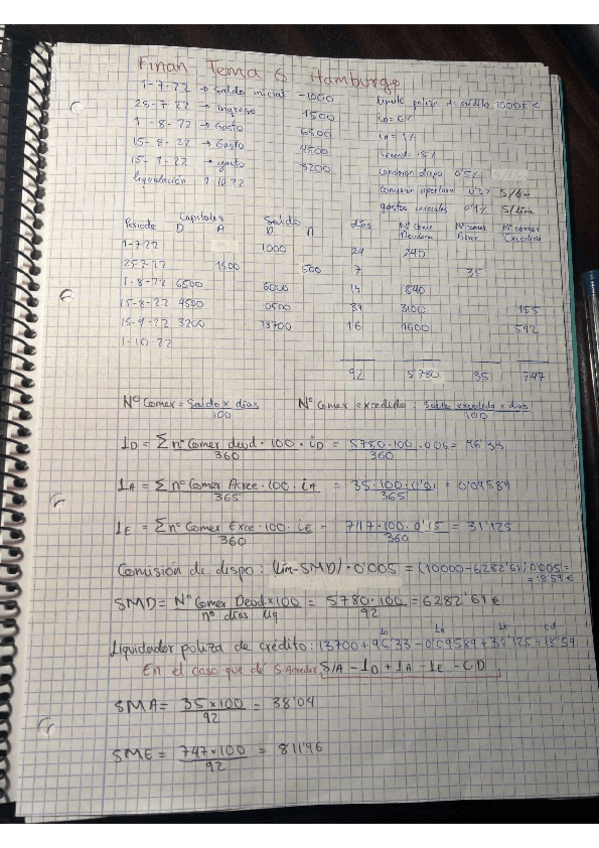 Finan Tema 6 Hamburgo
1-7-22 → Saldo inicial -1000
25-7-22 → ingreso 1500
1-8-22 → Gasto 6500
15-8-22 → Gasto 4500
15-9-22 → gasto 3200
liquidación 1-10-22
limite poliza de crédito 10000 €
iD = 6%
iA = 1%
15%
comisión dispo 0'5%
comisión apertura S/lim
gastos iniciales S/lim
Periodo Capitales Saldo días Nº Comer Nº Comer Nº comer
D A D A Deudora Acree Excedido
1-7-22 1000 24 240
25-7-22 1500 500 7 35
1-8-22 6500 6000 14 840
15-8-22 4500 10500 31 3100 155
15-9-22 3200 13700 16 1600 592
1-10-22
92 5780 35 747
Nº Comer = Saldo x días / 100 Nº Comer excedido: Saldo excedido x dias / 100
ID = Σ nº Comer deud · 100 · iD / 360 = 5780 · 100 · 0.06 / 360 = 96'33
IA = Σ nº Comer Acree · 100 · iA / 365 = 35 · 100 · 0'01 / 365 = 0'09589
IE = Σ nº Comer Exce · 100 · iE / 360 = 747 · 100 · 0'15 / 360 = 31'125
Comisión de dispo: (Lim - SMD) · 0'005 = (10000 - 6282'61) 0'005 =
= 18'59 €
SMD = Nº Comer Deud x 100 / nº dias liq = 5780 · 100 / 92 = 6282'61 €
ID IA IE Cd
Liquidador poliza de crédito: 13700 + 96'33 - 0'09589 + 31'125 + 18'59
En el caso que de S Acreedor, S/A - ID + IA - IE - CD
SMA = 35 x 100 / 92 = 38'04
SME = 747 x 100 / 92 = 811'96